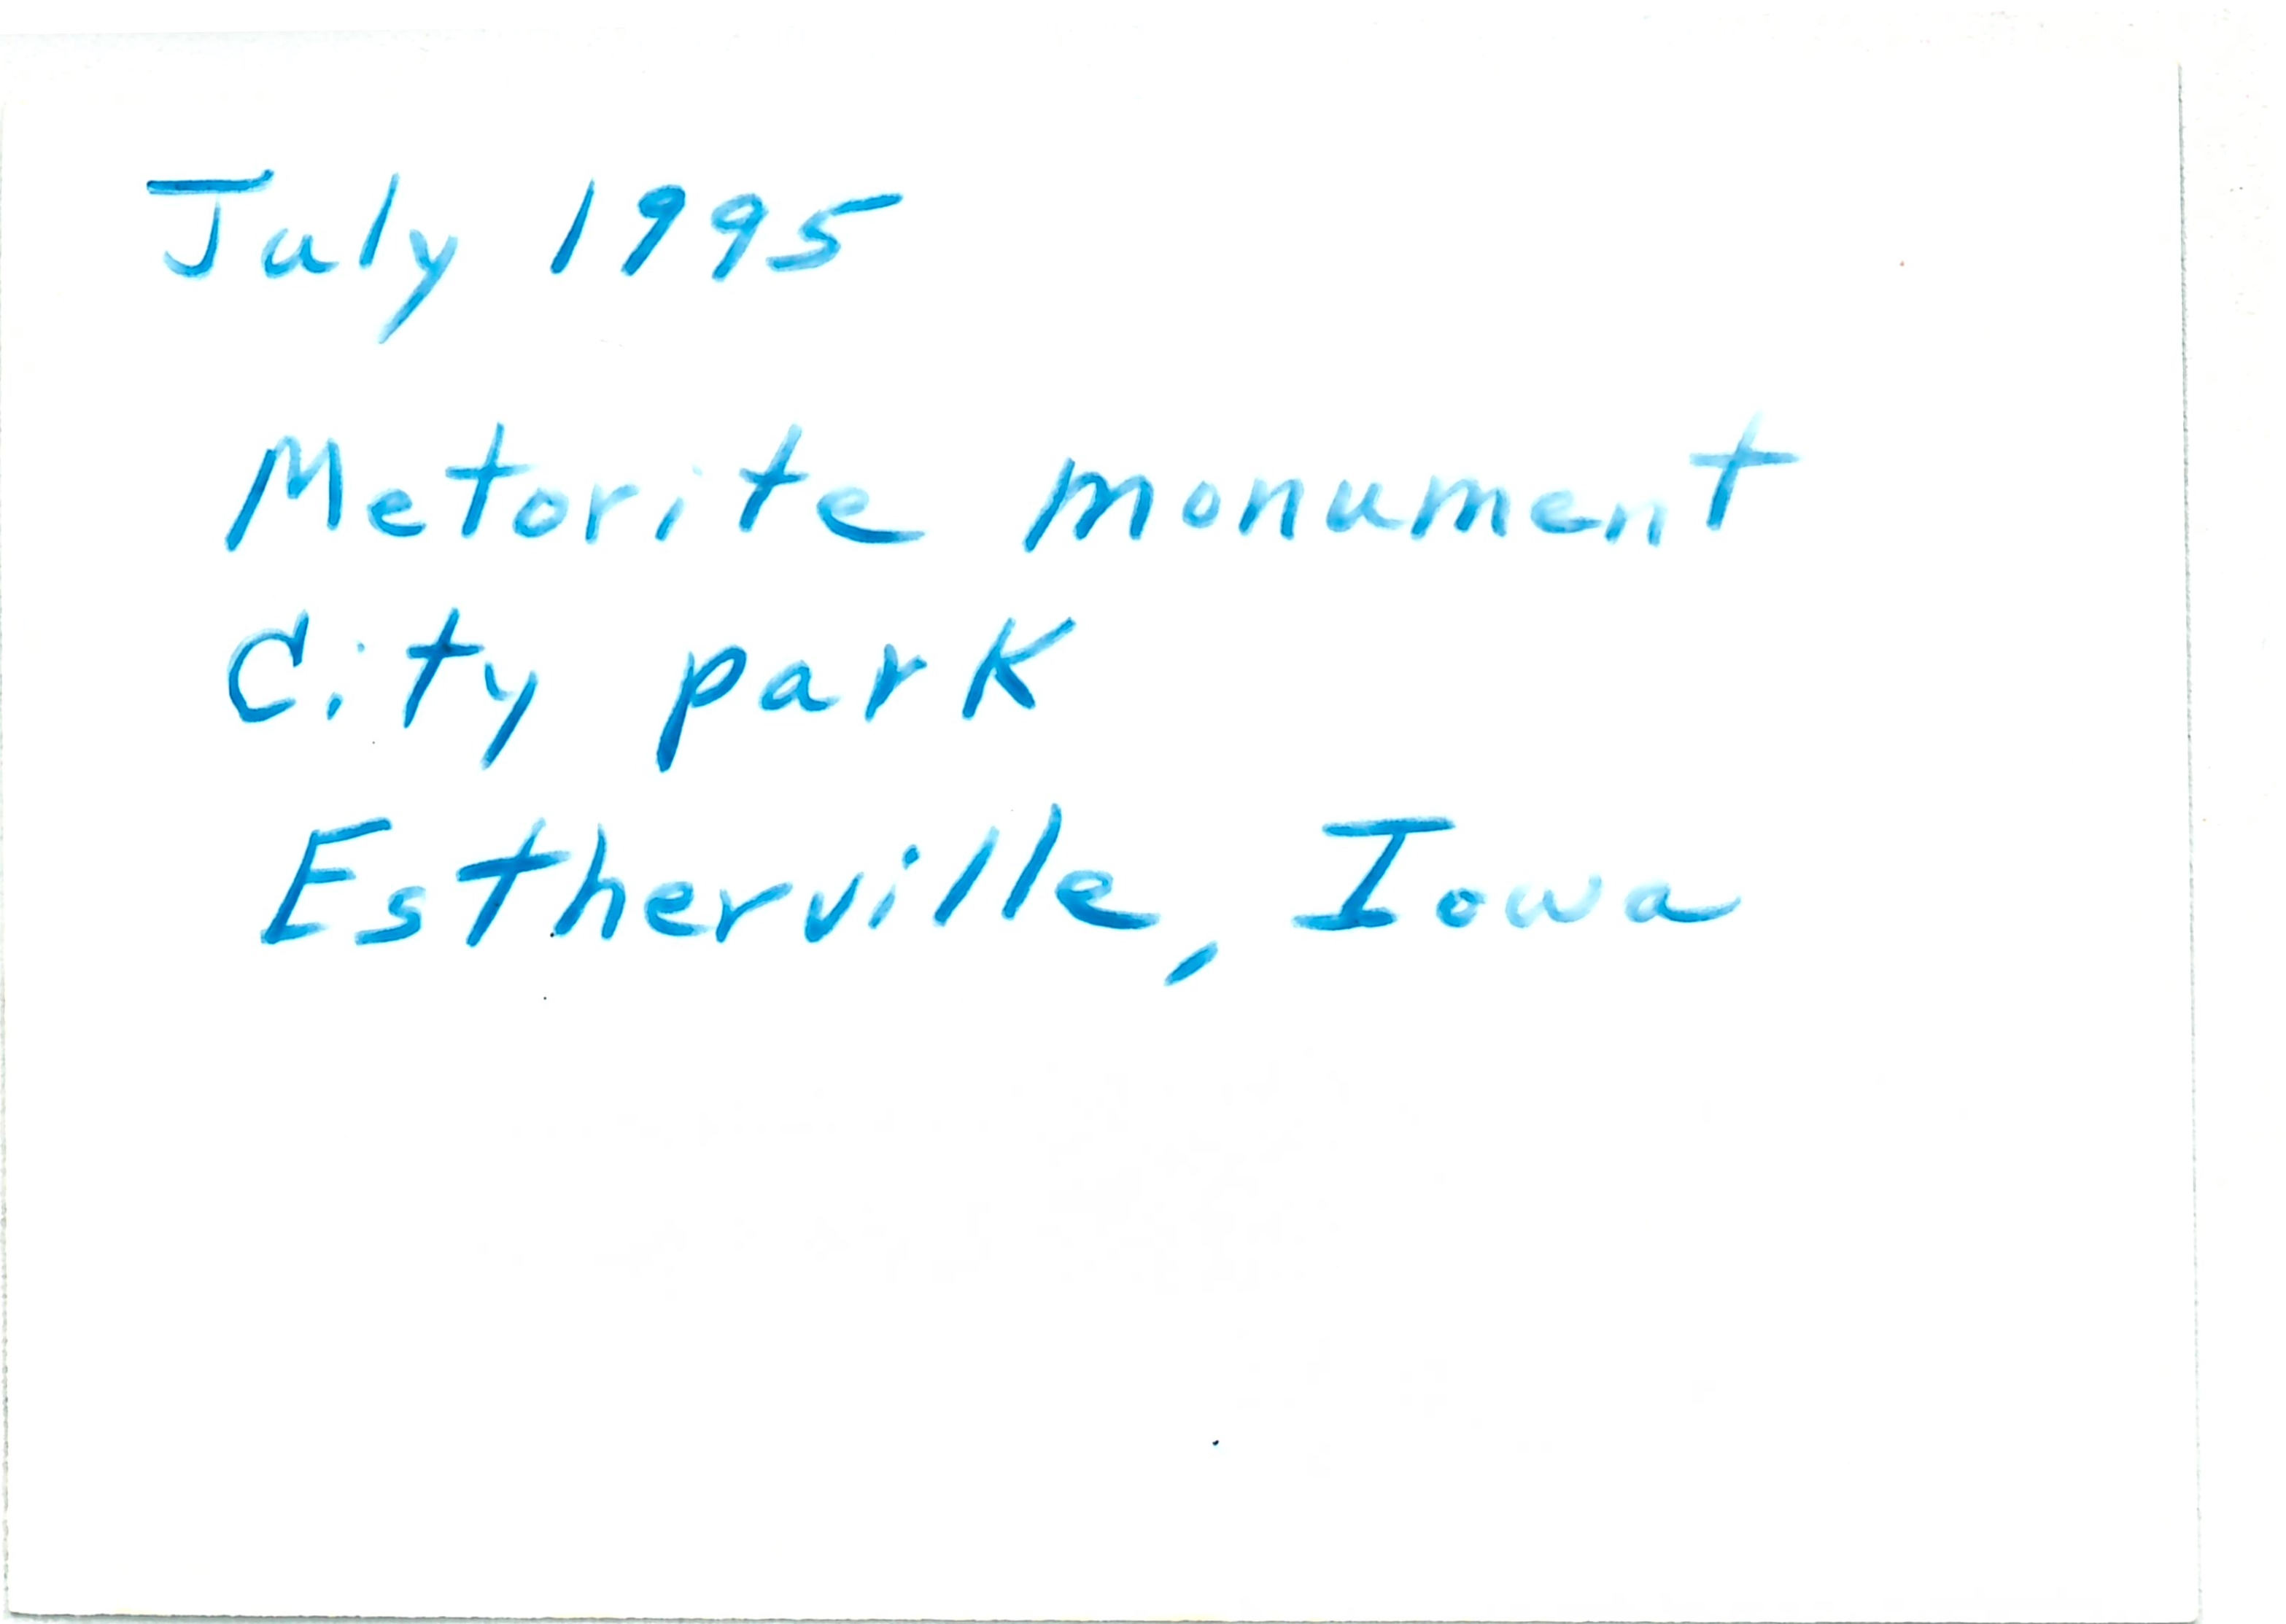 July 1995
Metorite monument
City park
Estherville, Iowa